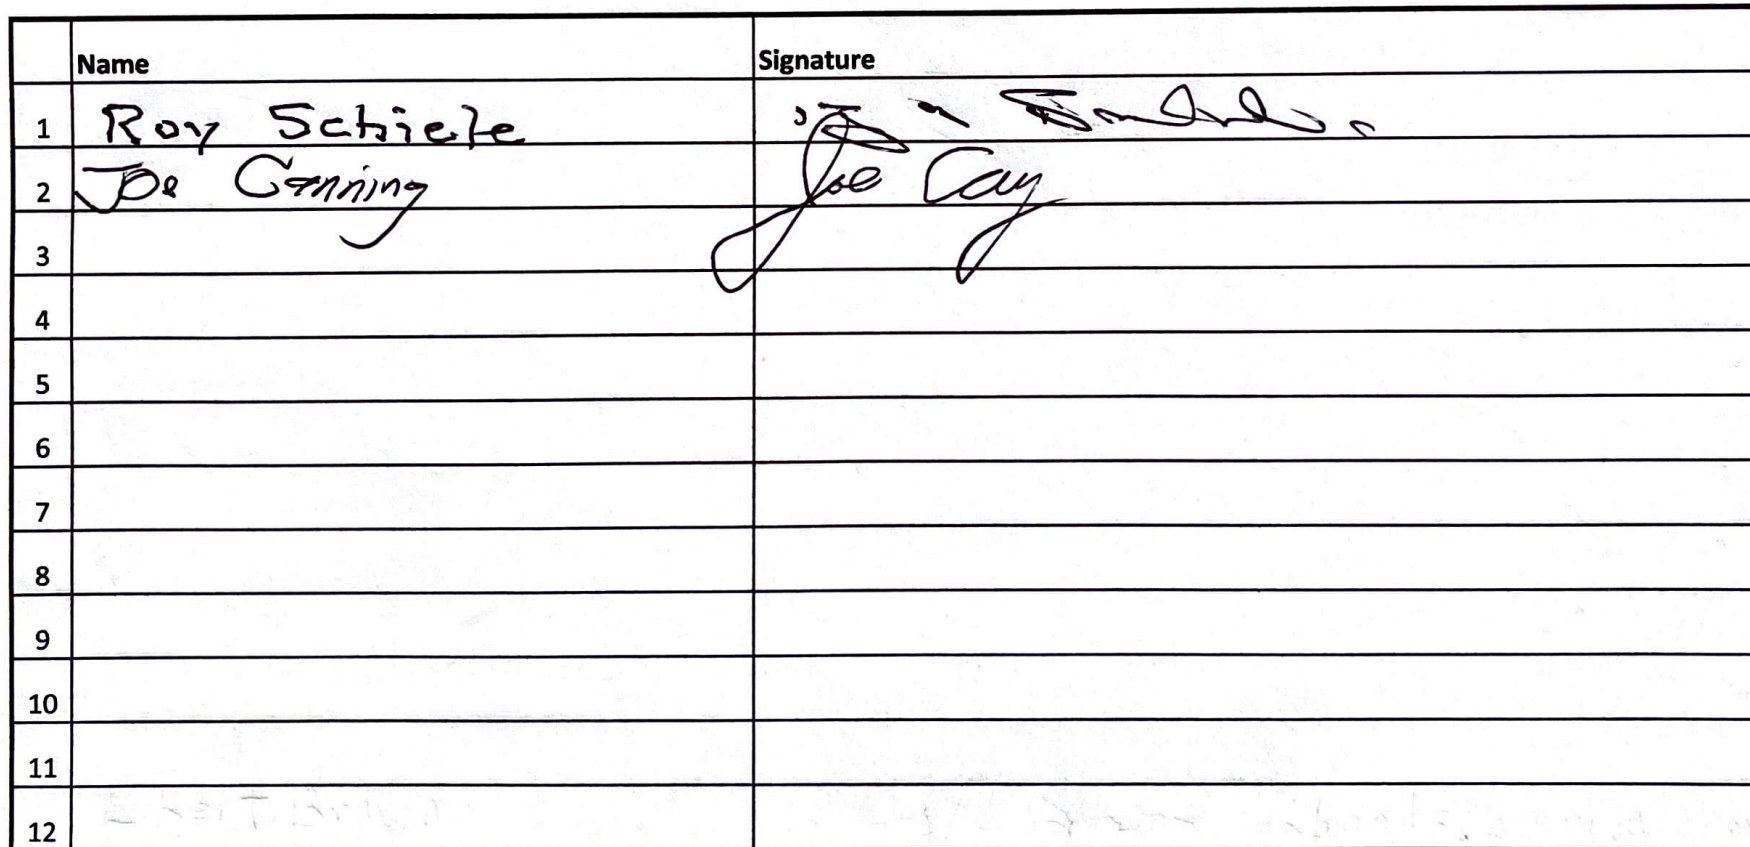 Name Signature
1 Roy Schiele
2 Joe Canning Joe
3
4
5
6
7
8
9
10
11
12